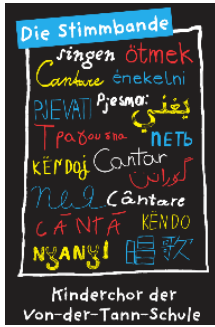 Die Stimmbande
singen ötmek
Cantare énekelni
PJEVATI Pjesma:
يغني
Τραγουδια петь
KËNDOJ Cantar
گۆرانی
Cântare
CÂNTĂ KËNDO
NYANYI 唱歌
Kinderchor der
Von-der-Tann-Schule